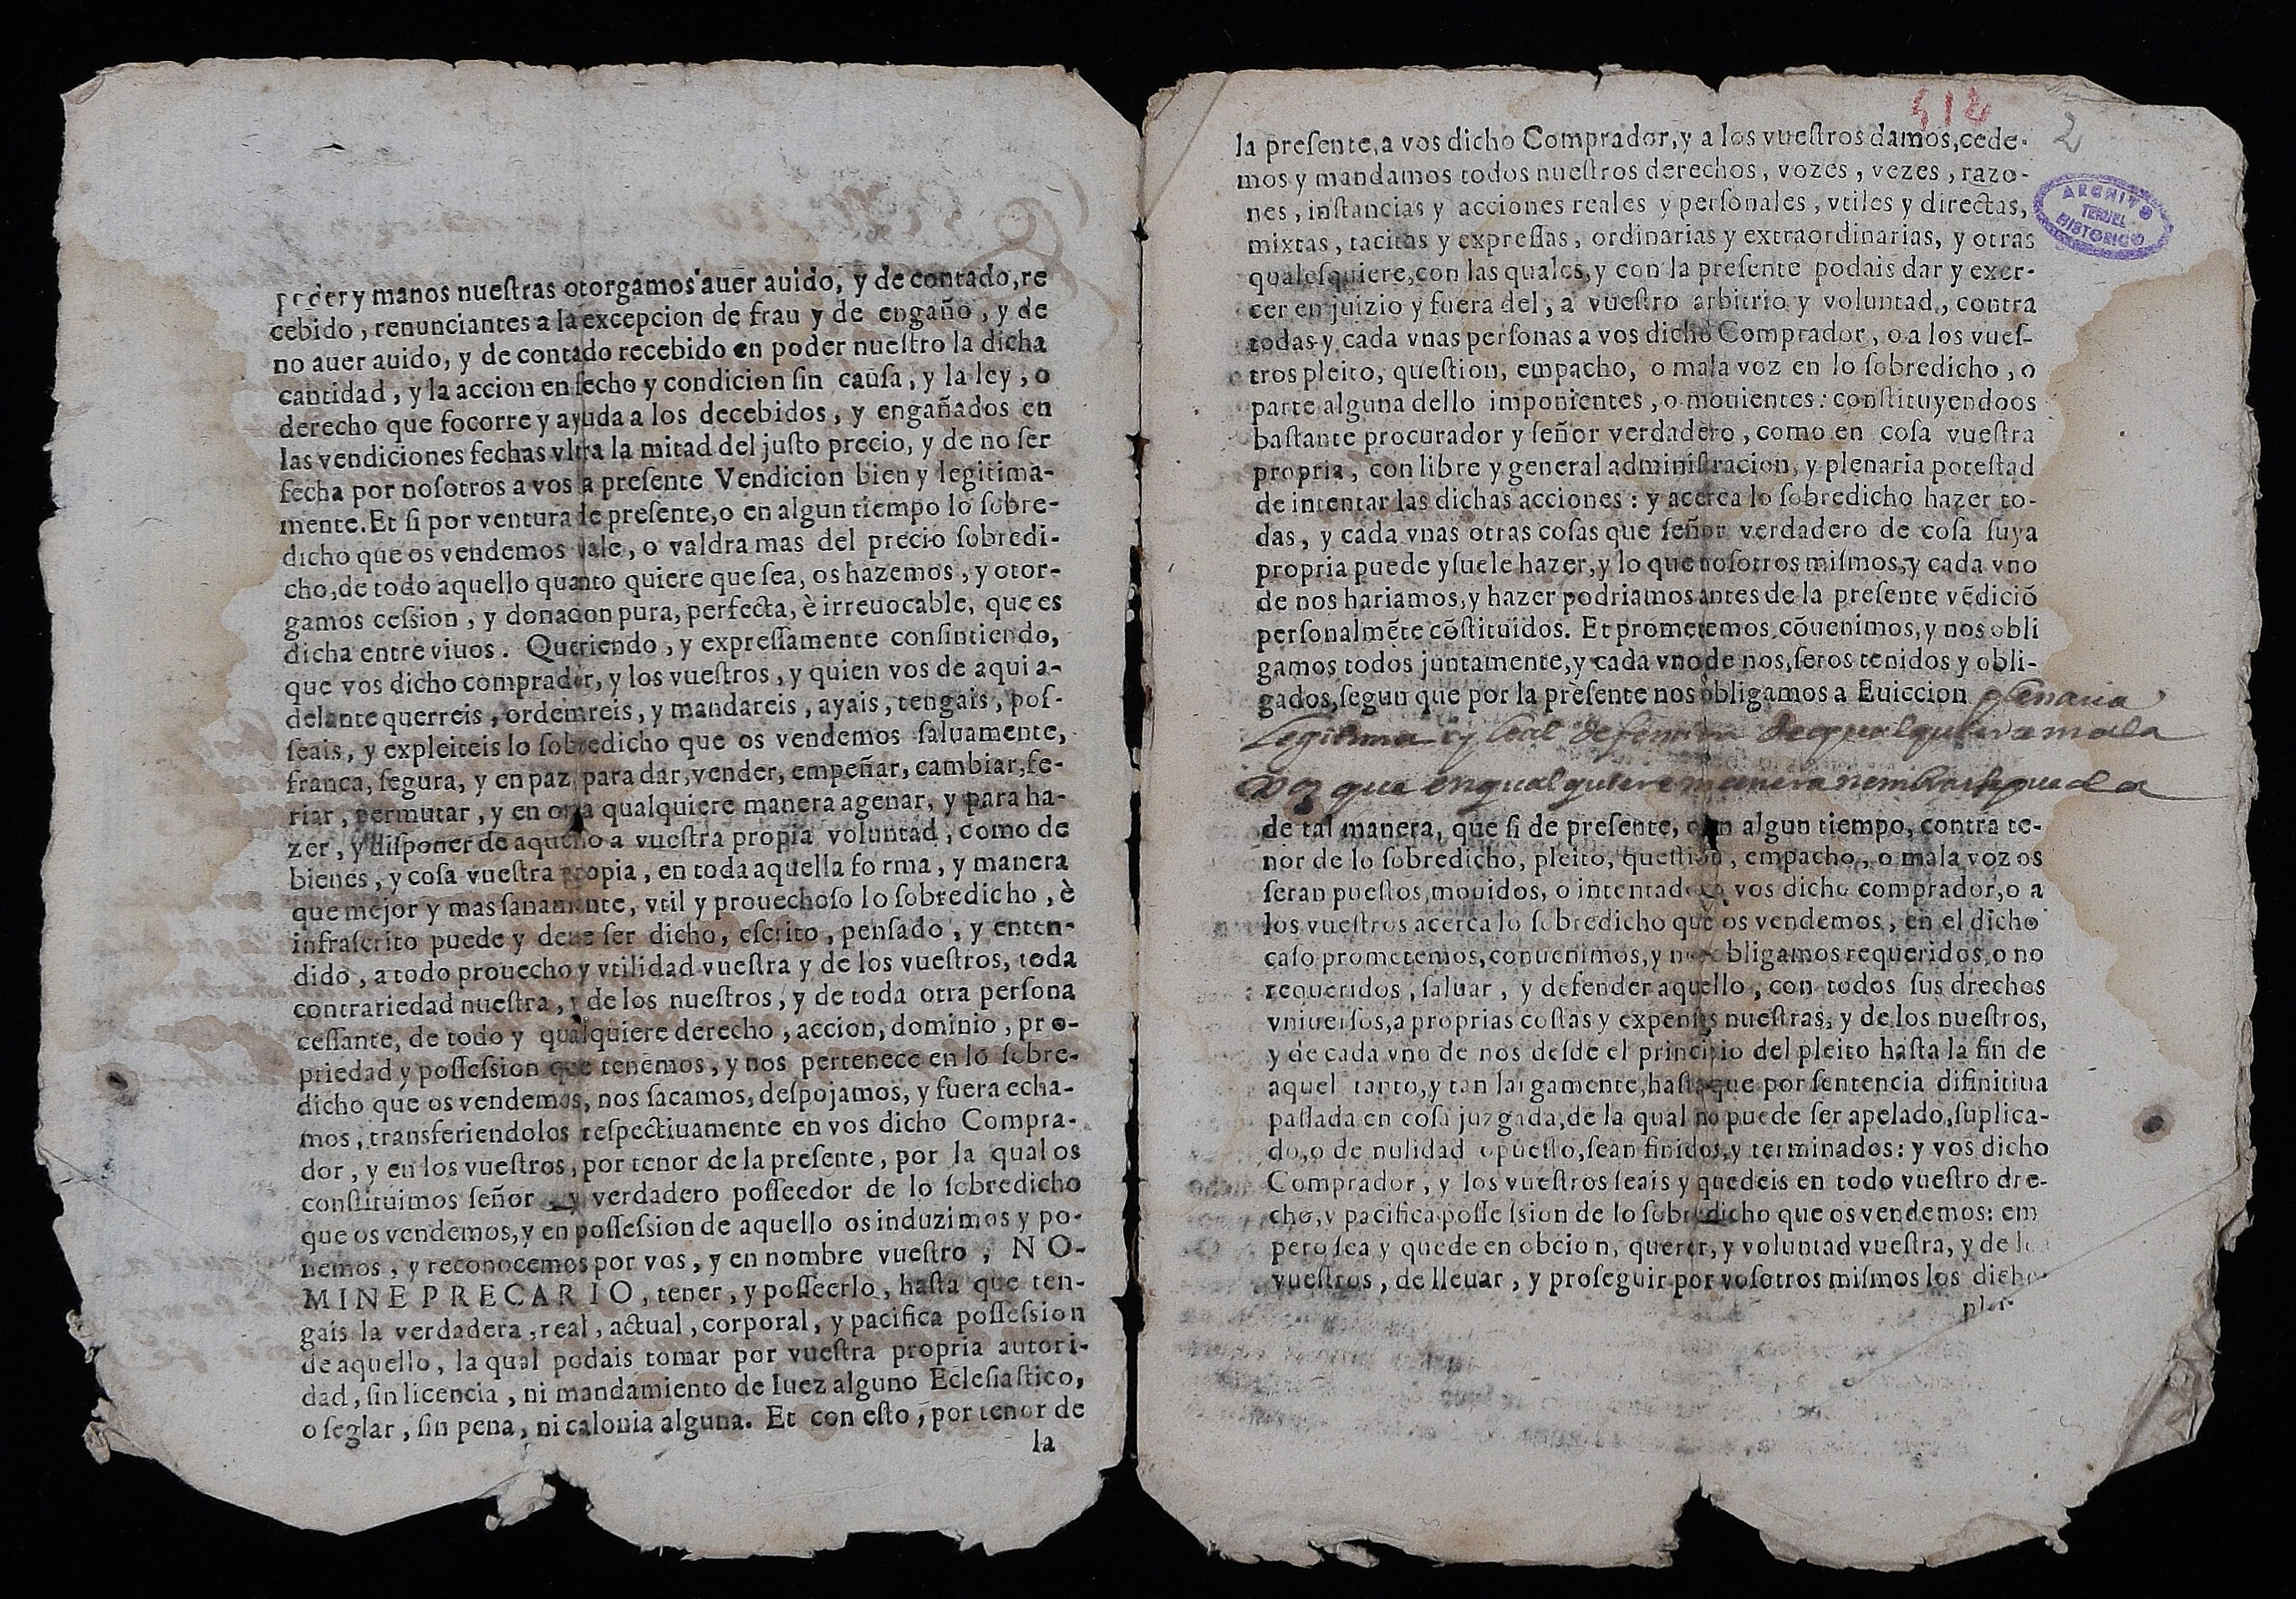 poder y manos nuestras otorgamos auer auido, y de contado, re
cebido, renunciantes a la excepcion de frau y de engaño, y de
no auer auido, y de contado recebido en poder nuestro la dicha
cantidad, y la accion en fecho y condicion ſin cauſa, y la ley, o
derecho que ſocorre y ayuda a los decebidos, y engañados en
las vendiciones fechas vltra la mitad del juſto precio, y de no ſer
fecha por noſotros a vos la preſente Vendicion bien y legitima-
mente. Et ſi por ventura de preſente, o en algun tiempo lo ſobre-
dicho que os vendemos vale, o valdra mas del precio ſobredi-
cho, de todo aquello quanto quiere que ſea, os hazemos, y otor-
gamos ceſsion, y donacion pura, perfecta, è irreuocable, que es
dicha entre viuos. Queriendo, y expreſſamente conſintiendo,
que vos dicho comprador, y los vueſtros, y quien vos de aqui a-
delante querreis, ordenareis, y mandareis, ayais, tengais, poſ-
ſeais, y expleiteis lo ſobredicho que os vendemos ſaluamente,
franca, ſegura, y en paz, para dar, vender, empeñar, cambiar, fe-
riar, permutar, y en otra qualquiere manera agenar, y para ha-
zer, y diſponer de aquello a vueſtra propia voluntad, como de
bienes, y coſa vueſtra propia, en toda aquella forma, y manera
que mejor y mas ſanamente, vtil y prouechoſo lo ſobredicho, è
infraſcrito puede y deue ſer dicho, eſcrito, penſado, y enten-
dido, a todo prouecho y vtilidad vueſtra y de los vueſtros, toda
contrariedad nueſtra, y de los nueſtros, y de toda otra perſona
ceſſante, de todo y qualquiere derecho, accion, dominio, pro-
priedad y poſſeſsion que tenemos, y nos pertenece en lo ſobre-
dicho que os vendemos, nos ſacamos, deſpojamos, y fuera echa-
mos, transferiendolos reſpectiuamente en vos dicho Compra-
dor, y en los vueſtros, por tenor de la preſente, por la qual os
conſtituimos ſeñor y verdadero poſſeedor de lo ſobredicho
que os vendemos, y en poſſeſsion de aquello os induzimos y po-
nemos, y reconocemos por vos, y en nombre vueſtro, NO-
MINE PRECARIO, tener, y poſſeerlo, haſta que ten-
gais la verdadera, real, actual, corporal, y pacifica poſſeſsion
de aquello, la qual podais tomar por vueſtra propria autori-
dad, ſin licencia, ni mandamiento de Iuez alguno Ecleſiaſtico,
o ſeglar, ſin pena, ni calonia alguna. Et con eſto, por tenor de
la
2
ARCHIVO
TERUEL
HISTORICO
la preſente, a vos dicho Comprador, y a los vueſtros damos, cede-
mos y mandamos todos nueſtros derechos, vozes, vezes, razo-
nes, inſtancias y acciones reales y perſonales, vtiles y directas,
mixtas, tacitas y expreſſas, ordinarias y extraordinarias, y otras
qualeſquiere, con las quales, y con la preſente podais dar y exer-
cer en juizio y fuera del, a vueſtro arbitrio y voluntad, contra
todas y cada vnas perſonas a vos dicho Comprador, o a los vueſ-
tros pleito, queſtion, empacho, o mala voz en lo ſobredicho, o
parte alguna dello imponientes, o mouientes: conſtituyendoos
baſtante procurador y ſeñor verdadero, como en coſa vueſtra
propria, con libre y general adminiſtracion, y plenaria poteſtad
de intentar las dichas acciones: y acerca lo ſobredicho hazer to-
das, y cada vnas otras coſas que ſeñor verdadero de coſa ſuya
propria puede y ſuele hazer, y lo que noſotros miſmos, y cada vno
de nos hariamos, y hazer podriamos antes de la preſente vẽdiciõ
perſonalmẽte cõſtituidos. Et prometemos, cõuenimos, y nos obli
gamos todos juntamente, y cada vno de nos, ſeros tenidos y obli-
gados, ſegun que por la preſente nos obligamos a Euiccion plenaria
legitima y leal defension de qualquiere mala
voz que en qualquiere manera nombrarse pueda
de tal manera, que ſi de preſente, o en algun tiempo, contra te-
nor de lo ſobredicho, pleito, queſtion, empacho, o mala voz os
ſeran pueſtos, mouidos, o intentados a vos dicho comprador, o a
los vueſtros acerca lo ſobredicho que os vendemos, en el dicho
caſo prometemos, conuenimos, y nos obligamos requeridos, o no
requeridos, ſaluar, y defender aquello, con todos ſus drechos
vniuerſos, a proprias coſtas y expenſas nueſtras, y de los nueſtros,
y de cada vno de nos deſde el principio del pleito haſta la fin de
aquel tanto, y tan largamente, haſta que por ſentencia difinitiua
paſſada en coſa juzgada, de la qual no puede ſer apelado, ſuplica-
do, o de nulidad opueſto, ſean finidos, y terminados: y vos dicho
Comprador, y los vueſtros ſeais y quedeis en todo vueſtro dre-
cho, y pacifica poſſeſsion de lo ſobredicho que os vendemos: em
pero ſea y quede en obcion, querer, y voluntad vueſtra, y de los
vueſtros, de lleuar, y proſeguir por voſotros miſmos los dichos